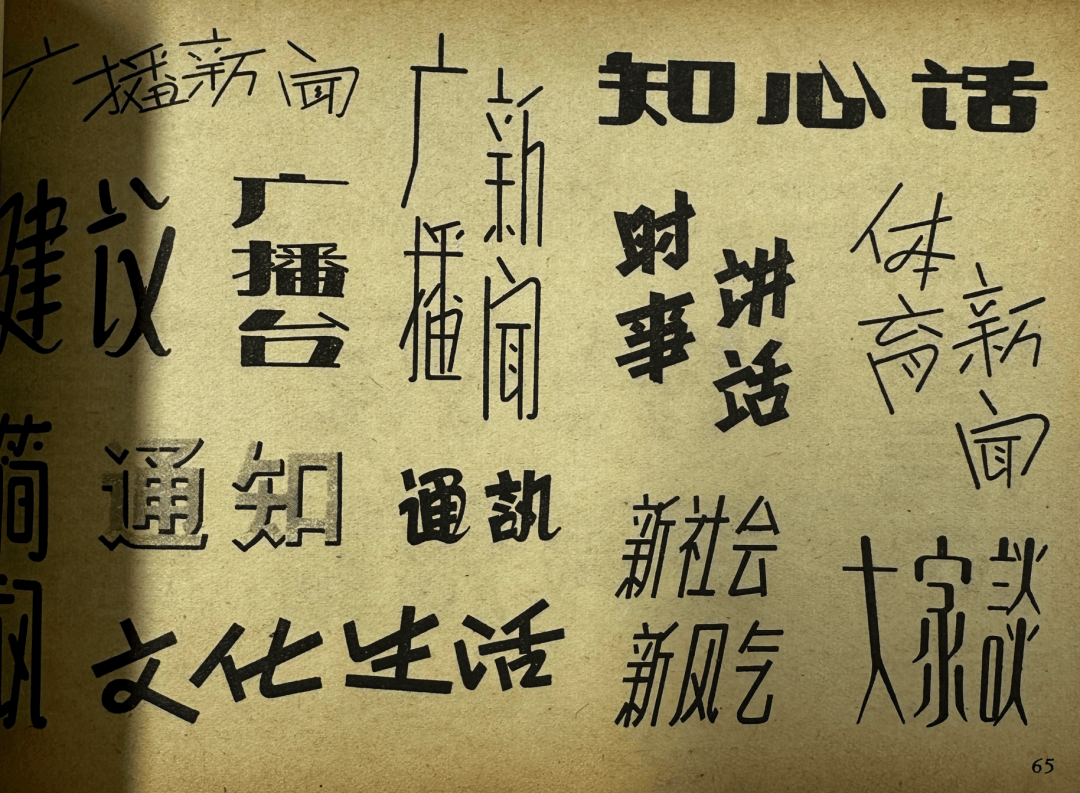 广播新闻
建议
广播台
广播
新闻
知心话
时事
讲话
体育
新闻
简讯
通知
通訊
新社会
新风气
大家談
文化生活
65